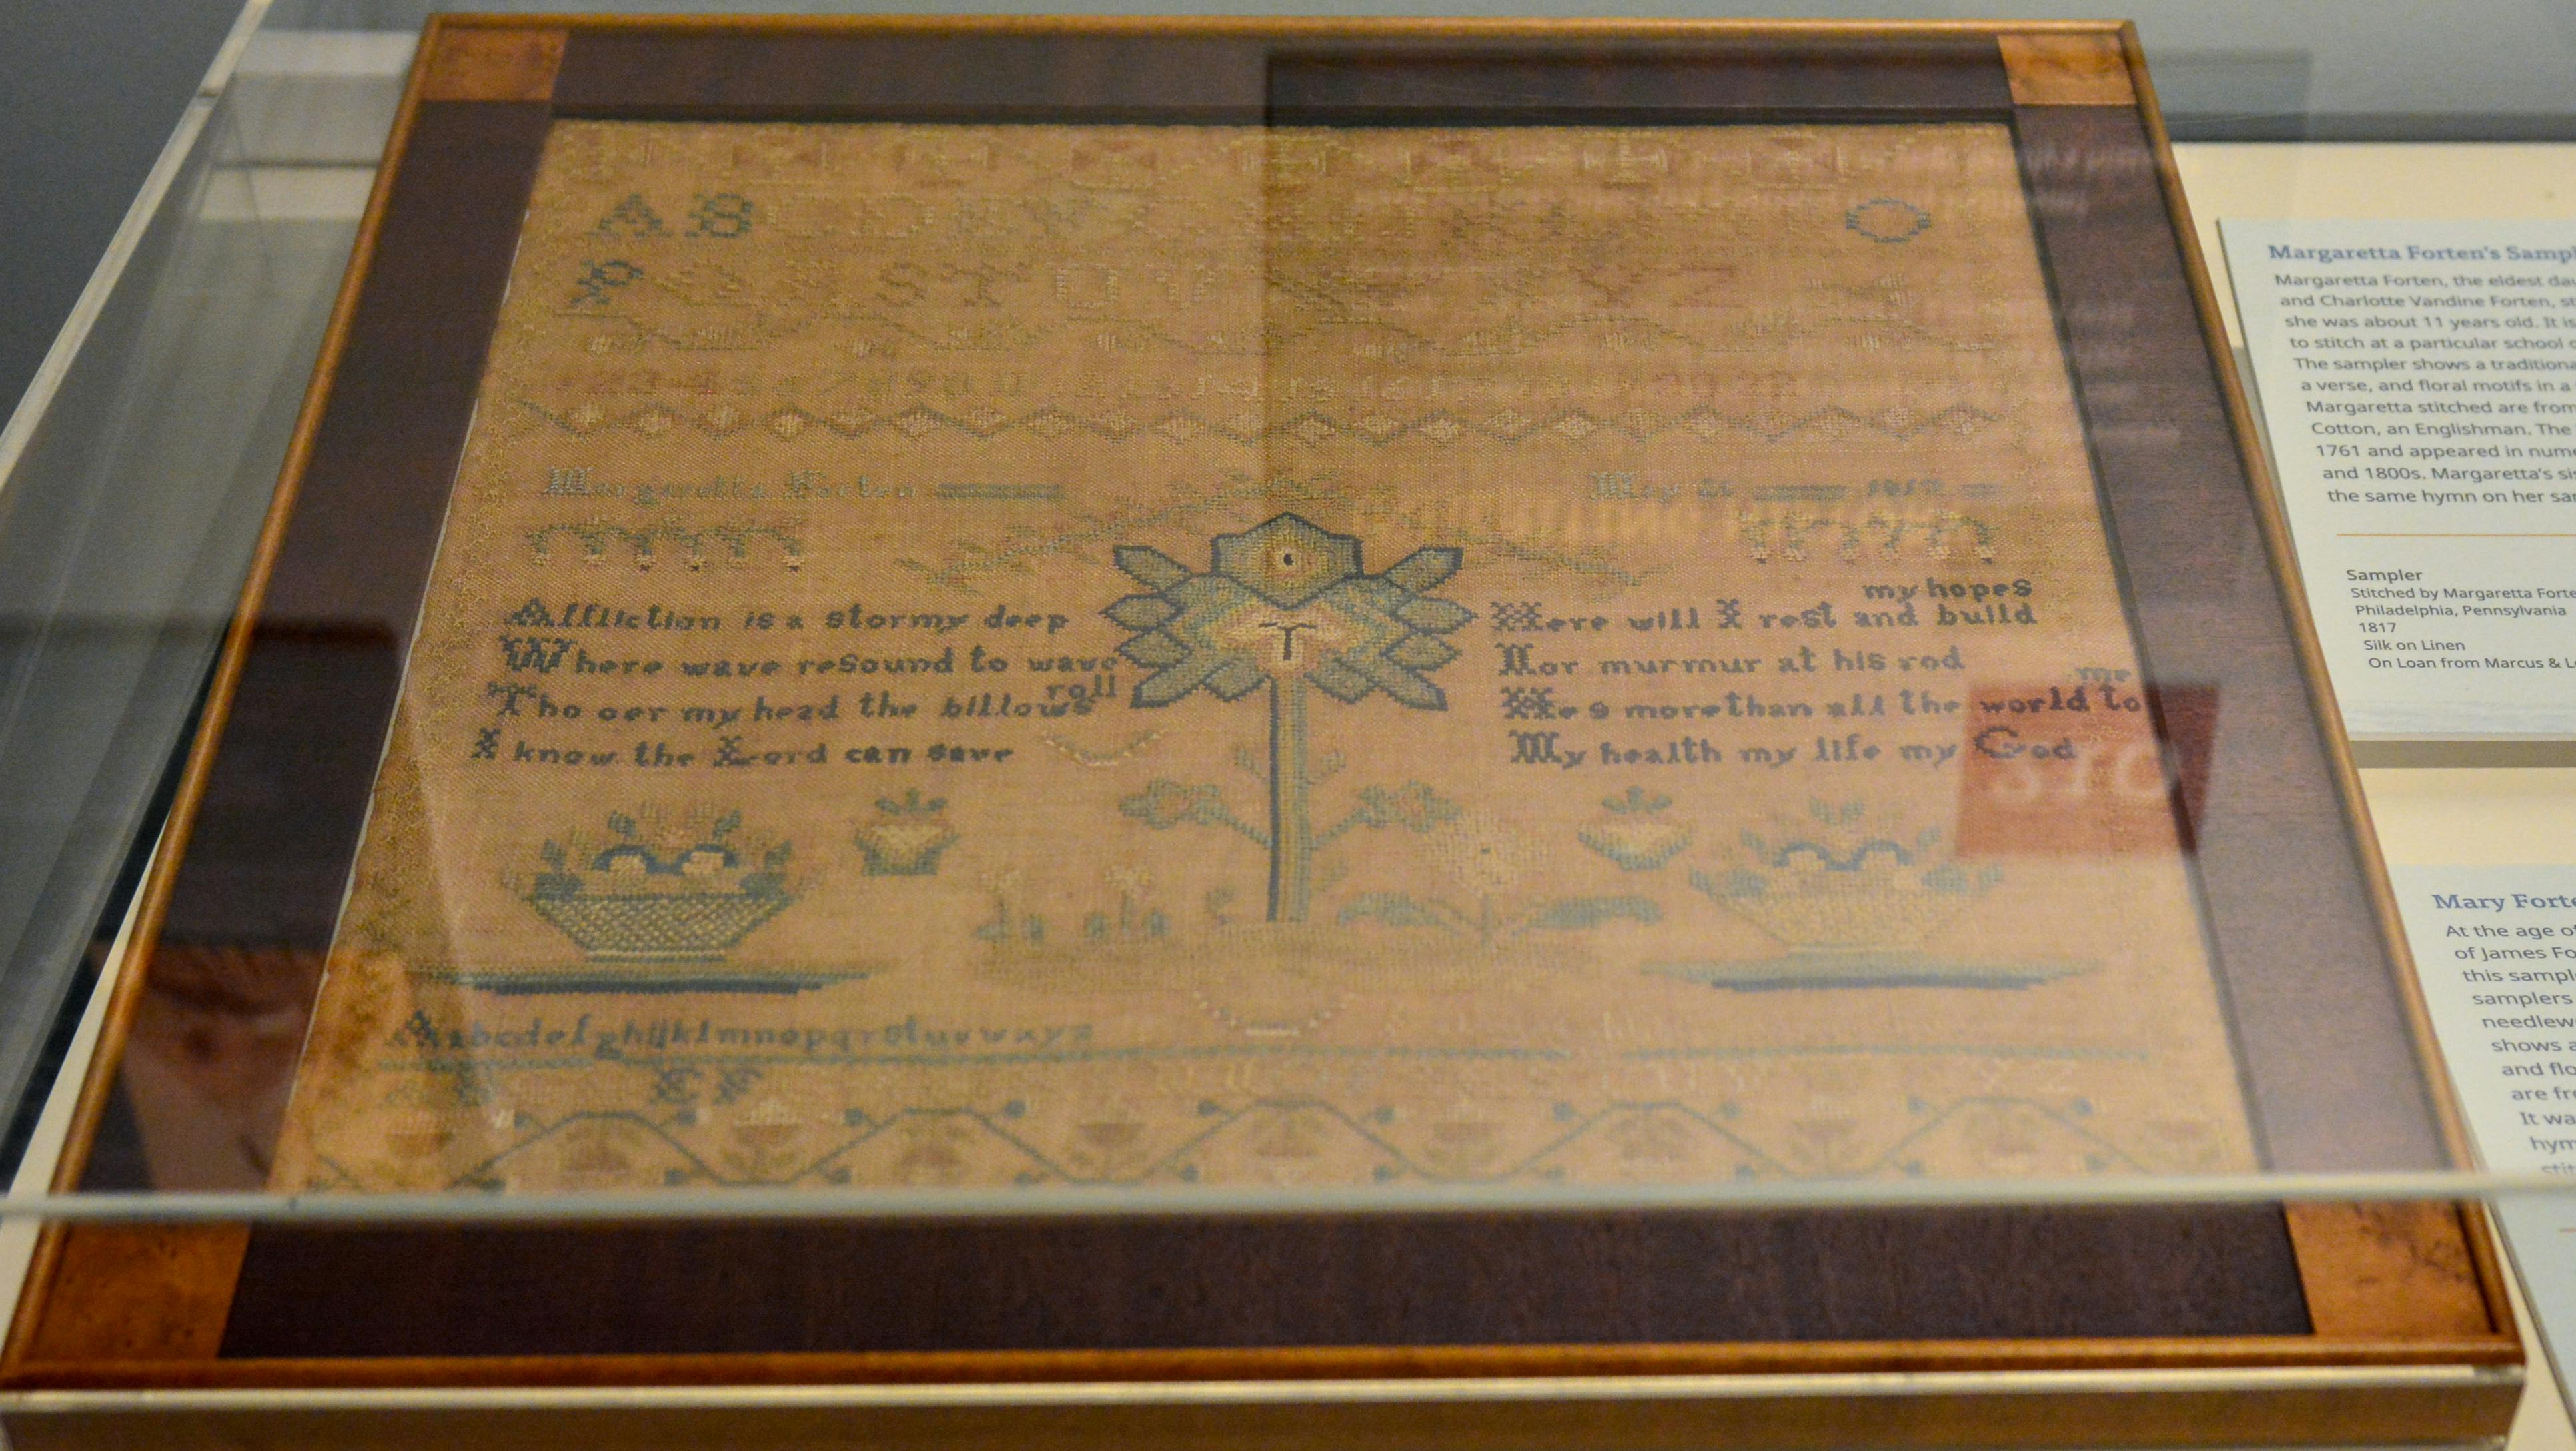 A B C D E
P Q R S T U V X Y Z
Margaretta Forten
May 1817
Affliction is a stormy deep
Where wave resound to wave
roll
Tho oer my head the billows
I know the Lord can save
my hopes
Here will I rest and build
Nor murmur at his rod
me
He s more than all the world to
My health my life my God
abcdefghijklmnopqrstuvwxyz
Margaretta Forten's Sampl
Margaretta Forten, the eldest dau
and Charlotte Vandine Forten, st
she was about 11 years old. It is
to stitch at a particular school
The sampler shows a traditiona
a verse, and floral motifs in a
Margaretta stitched are from
Cotton, an Englishman. The
1761 and appeared in nume
and 1800s. Margaretta's sis
the same hymn on her sa
Sampler
Stitched by Margaretta Forte
Philadelphia, Pennsylvania
1817
Silk on Linen
On Loan from Marcus & L
Mary Forte
At the age of
of James Fo
this sampl
samplers
needlew
shows a
and flo
are fr
It wa
hym
stit